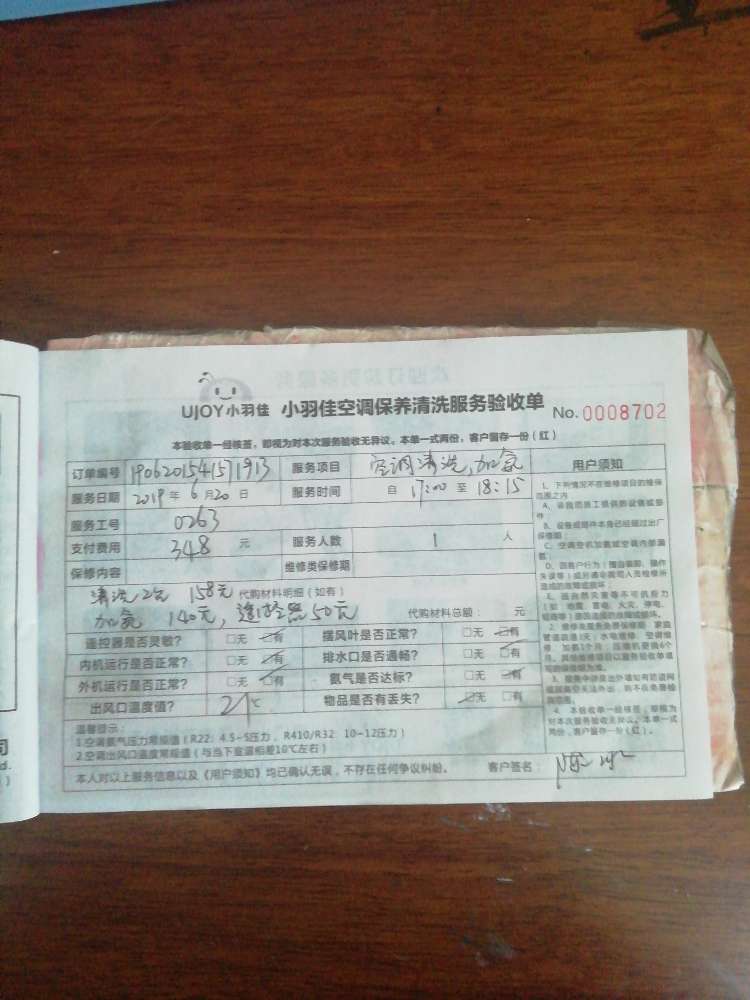 UJOY小羽佳 小羽佳空调保养清洗服务验收单 No.0008702
本验收单一经核签，即视为对本次服务验收无异议。本单一式两份，客户留存一份（红）
订单编号 190620154157 1913 服务项目 空调清洗，加氟
服务日期 2019年6月20日 服务时间 自 17:00 至 18:15
服务工号 0263
支付费用 348 元 服务人数 1 人
保修内容 维修类保修期
清洗2台 158元 代购材料明细（如有）
加氟 140元，遥控器50元 代购材料总额： 元
遥控器是否灵敏？ □无 □有 摆风叶是否正常？ □无 □有
内机运行是否正常？ □无 □有 排水口是否通畅？ □无 □有
外机运行是否正常？ □无 □有 氟气是否达标？ □无 □有
出风口温度值？ 21℃ 物品是否有丢失？ □无 □有
温馨提示：
1.空调氟气压力常规值（R22：4.5-5压力，R410/R32 10-12压力）
2.空调出风口温度常规值（与当下室温相差10℃左右）
本人对以上服务信息以及《用户须知》均已确认无误，不存在任何争议纠纷。 客户签名：
用户须知
1、下列情况不在维修项目的维保
范围之内
A、非我司施工提供的设备或部
件
B、设备或部件本身已经超过出厂
保修期
C、空调空机加氟或空调内部漏
氟
司
td.
)